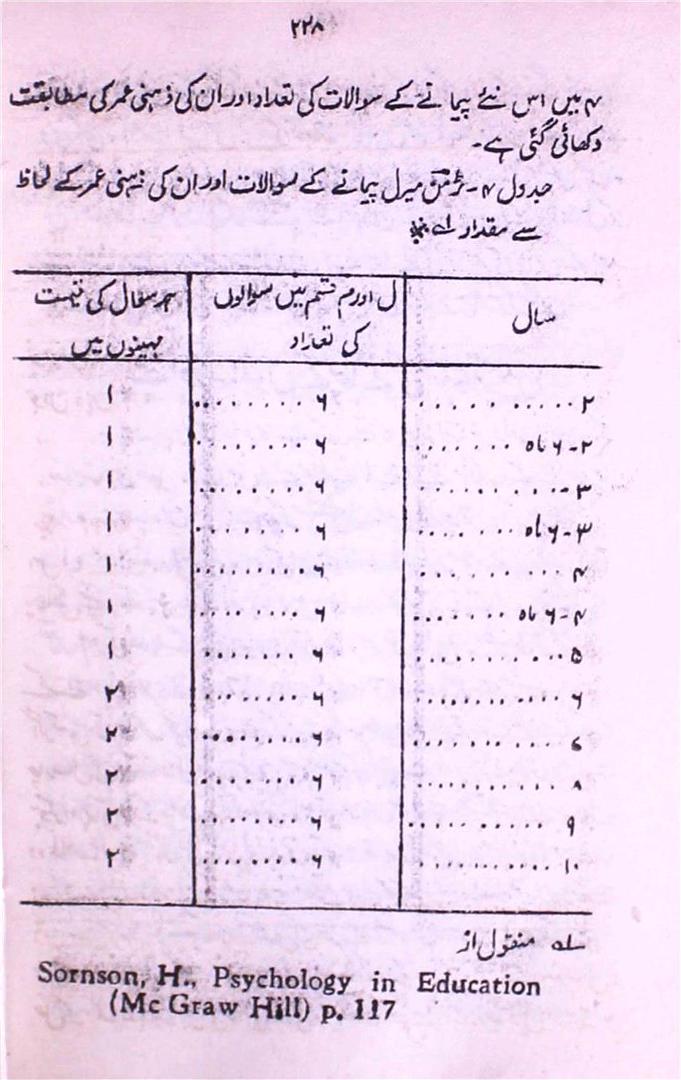 ۲۲۸
۴ میں اس نئے پیمانے کے سوالات کی تعداد اور ان کی ذہنی عمر کی مطابقت
دکھائی گئی ہے۔
جدول ۴۔ ٹرمن میرل پیمانے کے سوالات اور ان کی ذہنی عمر کے لحاظ
سے مقدار
سال | ل اور م قسم میں سوالوں کی تعداد | ہر سوال کی قیمت مہینوں میں
۲ .......... | ۶ ........ | ۱
۲۔۶ ماہ ....... | ۶ ........ | ۱
۳۔ ......... | ۶ ........ | ۱
۳۔۶ ماہ ....... | ۶ ........ | ۱
۴ .......... | ۶ ........ | ۱
۴۔۶ ماہ ....... | ۶ ........ | ۱
۵ .......... | ۶ ........ | ۱
۶ .......... | ۶ ........ | ۲
۷ .......... | ۶ ........ | ۲
۸ .......... | ۶ ........ | ۲
۹ .......... | ۶ ........ | ۲
۱۰ .......... | ۶ ........ | ۲
۱ہ منقول از
Sornson, H., Psychology in Education
(Mc Graw Hill) p. 117